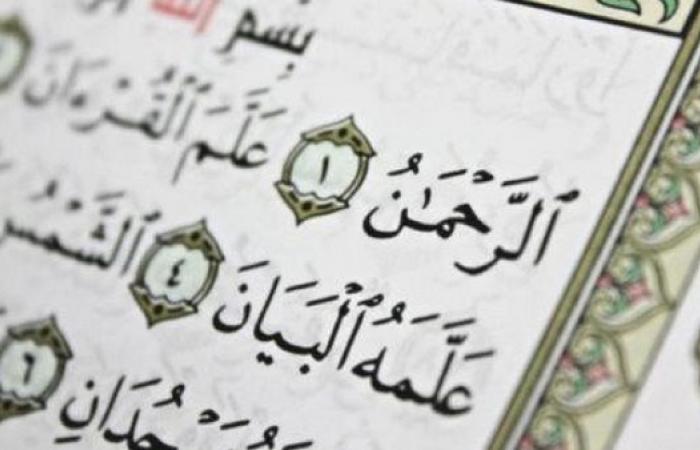 بِسْمِ ٱللَّهِ
ٱلرَّحْمَـٰنُ ١ عَلَّمَ ٱلْقُرْءَانَ
عَلَّمَهُ ٱلْبَيَانَ ٤ ٱلشَّمْسُ
يَسْجُدَانِ ٦